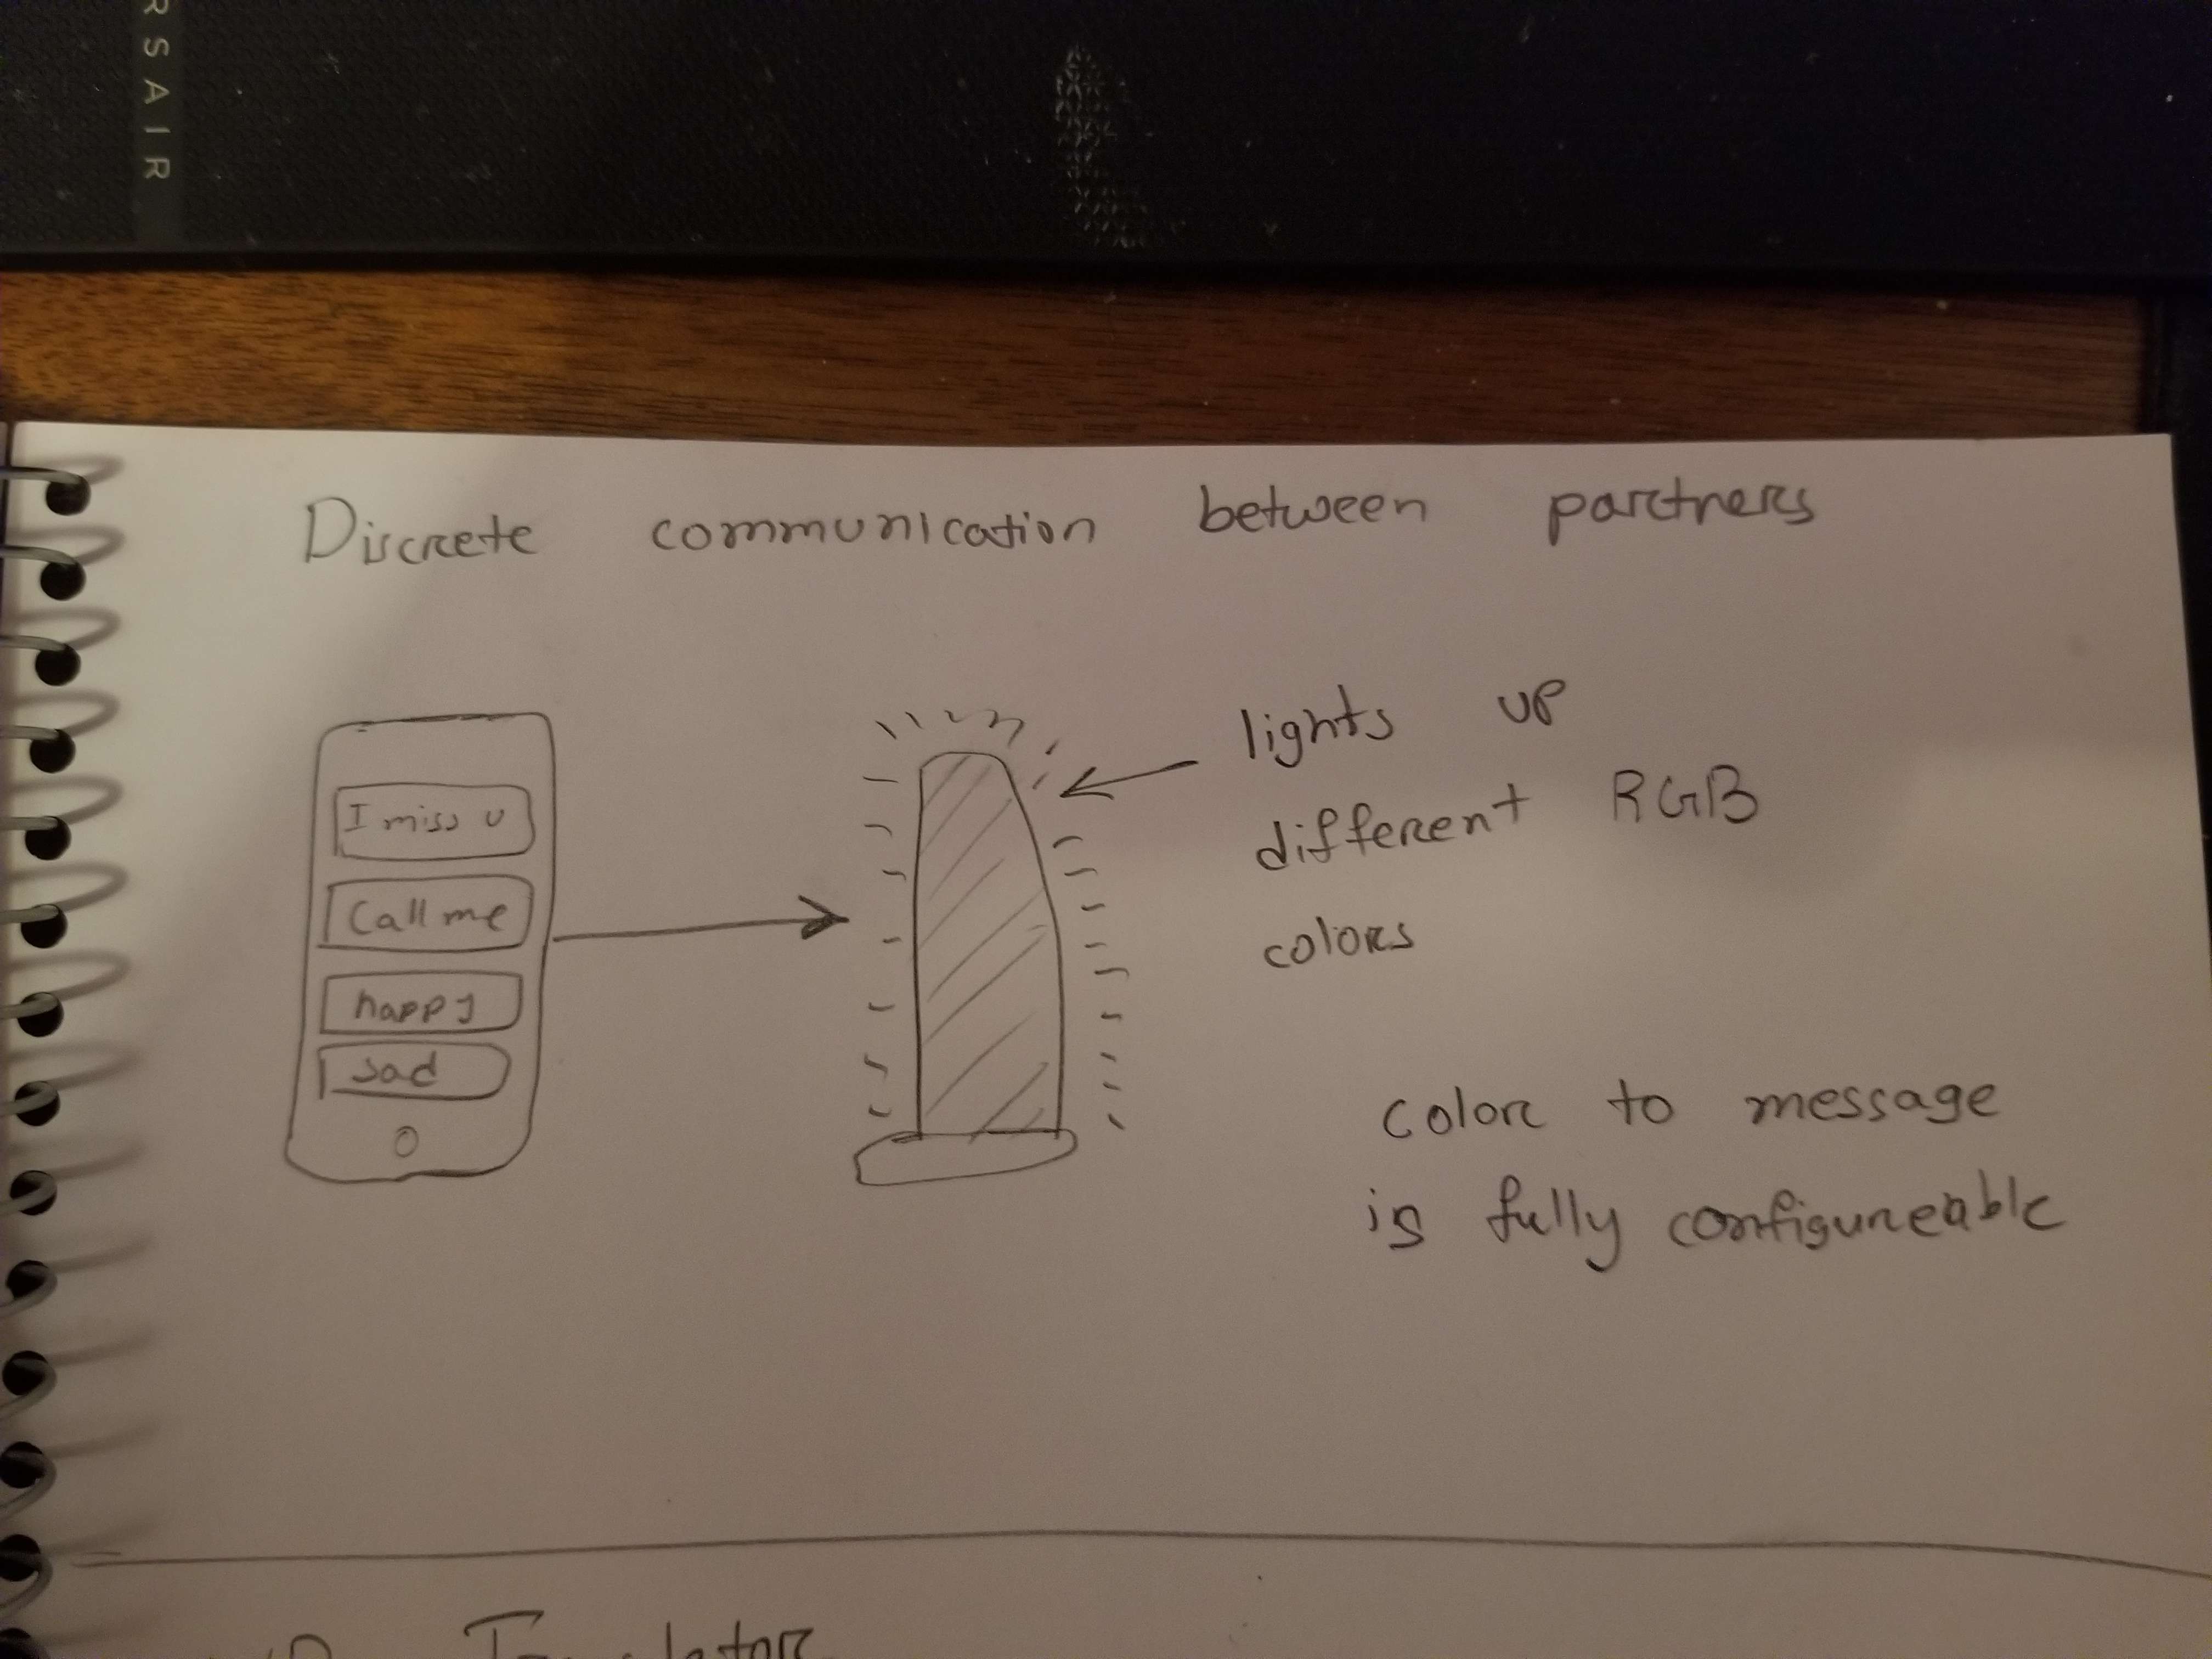 RSAIR
Discrete communication between partners
I miss u
Call me
happy
sad
lights up
different RGB
colors
color to message
is fully configureable